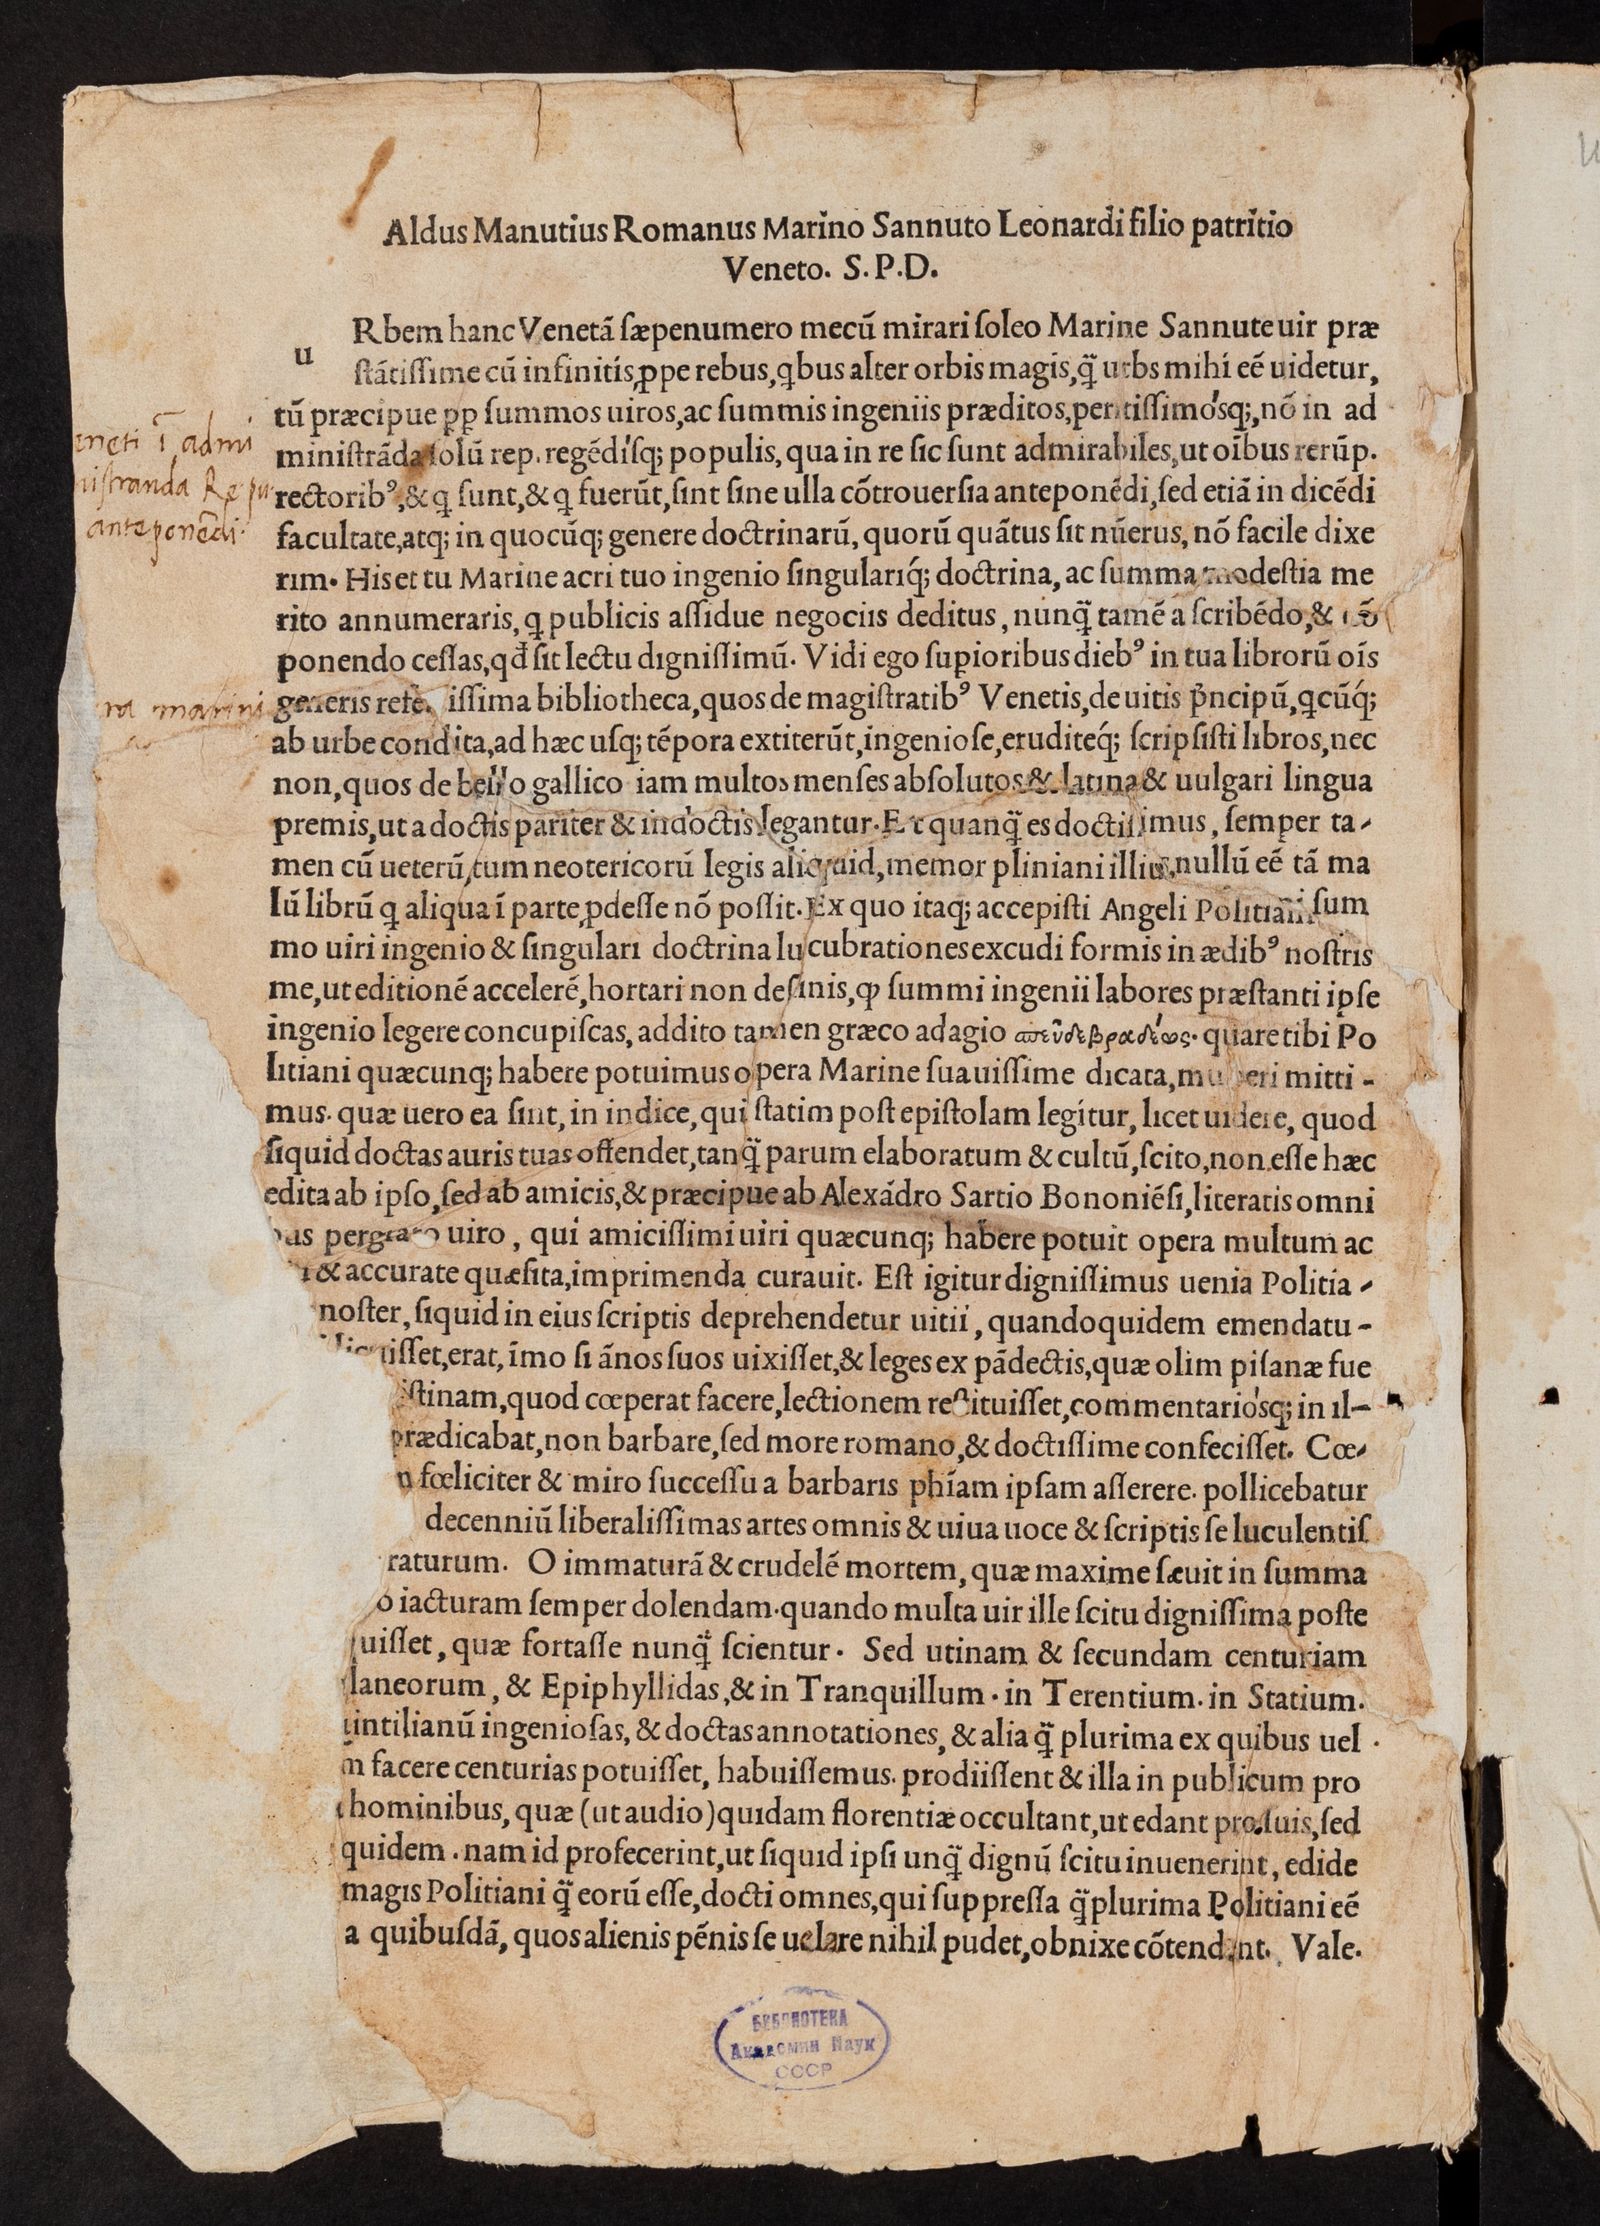 Aldus Manutius Romanus Marino Sannuto Leonardi filio patritio
Veneto. S.P.D.
u
Rbem hanc Venetã ſæpenumero mecũ mirari ſoleo Marine Sannute uir præ
ſtãtiſſime cũ infinitis ꝓpe rebus, qbus alter orbis magis, q̃ urbs mihi eẽ uidetur,
tũ præcipue ꝓp ſummos uiros, ac ſummis ingeniis præditos, peritiſſimóſq;, nõ in ad
miniſtrãda ſolũ rep. regẽdíſq; populis, qua in re ſic ſunt admirabiles, ut oĩbus rerũp.
rectoribꝰ, & q ſunt, & q fuerũt, ſint ſine ulla cõtrouerſia anteponẽdi, ſed etiã in dicẽdi
facultate, atq; in quocũq; genere doctrinarũ, quorũ quãtus ſit nũerus, nõ facile dixe
rim. His et tu Marine acri tuo ingenio ſingularíq; doctrina, ac ſumma modeſtia me
rito annumeraris, q publicis aſſidue negociis deditus, nunq̃ tamẽ a ſcribẽdo, & cõ
ponendo ceſſas, qđ ſit lectu digniſſimũ. Vidi ego ſupioribus diebꝰ in tua librorũ oĩs
generis refe iſſima bibliotheca, quos de magiſtratibꝰ Venetis, de uitis p̃ncipũ, qcũq́;
ab urbe condita, ad hæc uſq; tẽpora extiterũt, ingenioſe, eruditeq́; ſcripſiſti libros, nec
non, quos de bello gallico iam multos menſes abſolutos & latina & uulgari lingua
premis, ut a doctis pariter & indoctis legantur. Et quanq̃ es doctiſſimus, ſemper ta-
men cũ ueterũ, tum neotericorũ legis aliquid, memor pliniani illius, nullũ eẽ tã ma
lũ librũ q aliqua ĩ parte ꝓdeſſe nõ poſſit. Ex quo itaq; accepiſti Angeli Politiani ſum
mo uiri ingenio & ſingulari doctrina lucubrationes excudi formis in ædibꝰ noſtris
me, ut editionẽ accelerẽ, hortari non deſinis, ꝙ ſummi ingenii labores præſtanti ipſe
ingenio legere concupiſcas, addito tamen græco adagio σπεῦδε βραδέως. quare tibi Po
litiani quæcunq; habere potuimus opera Marine ſuauiſſime dicata, muneri mitti-
mus. quæ uero ea ſint, in indice, qui ſtatim poſt epiſtolam legitur, licet uidere, quod
ſiquid doctas auris tuas offendet, tanq̃ parum elaboratum & cultũ, ſcito, non eſſe hæc
edita ab ipſo, ſed ab amicis, & præcipue ab Alexãdro Sartio Bononiẽſi, literatis omni
bus pergrato uiro, qui amiciſſimi uiri quæcunq; habere potuit opera multum ac
& accurate quæſita, imprimenda curauit. Eſt igitur digniſſimus uenia Politia-
noſter, ſiquid in eius ſcriptis deprehendetur uitii, quandoquidem emendatu-
uiſſet, erat, ĩmo ſi ãnos ſuos uixiſſet, & leges ex pãdectis, quæ olim piſanæ fue
iſtinam, quod cœperat facere, lectionem reſtituiſſet, commentarióſq; in il-
prædicabat, non barbare, ſed more romano, & doctiſſime confeciſſet. Cœ-
fœliciter & miro ſucceſſu a barbaris phĩam ipſam aſſerere. pollicebatur
decenniũ liberaliſſimas artes omnis & uiua uoce & ſcriptis ſe luculentiſ
raturum. O immaturã & crudelẽ mortem, quæ maxime ſæuit in ſumma
o iacturam ſemper dolendam. quando multa uir ille ſcitu digniſſima poſte
uiſſet, quæ fortaſſe nunq̃ ſcientur. Sed utinam & ſecundam centuriam
laneorum, & Epiphyllidas, & in Tranquillum. in Terentium. in Statium.
intilianũ ingenioſas, & doctas annotationes, & alia q̃ plurima ex quibus uel
m facere centurias potuiſſet, habuiſſemus. prodiiſſent & illa in publicum pro
hominibus, quæ (ut audio) quidam florentiæ occultant, ut edant pro ſuis, ſed
quidem. nam id profecerint, ut ſiquid ipſi unq̃ dignũ ſcitu inuenerint, edide
magis Politiani q̃ eorũ eſſe, docti omnes, qui ſuppreſſa q̃ plurima Politiani eẽ
a quibuſdã, quos alienis pẽnis ſe uelare nihil pudet, obnixe cõtendant. Vale.
eneti ĩ admi
niſtranda Rep
anteponẽdi
ra marini
БИБЛИОТЕКА
Академии Наук
СССР